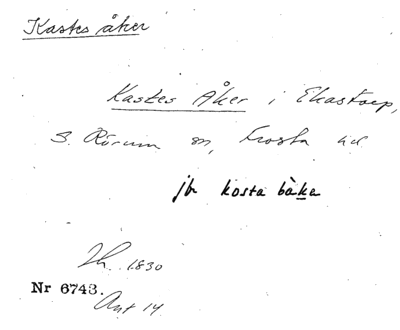 Kastes åker
Kastes Åker i Ekastorp,
S. Rörum sn, Frosta hd
jbr kosta bàka
1830
Nr 6743.
Ant 14